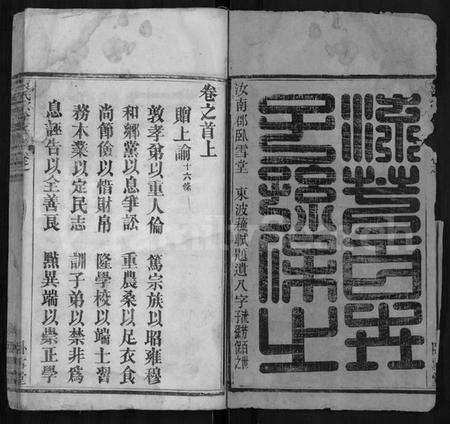 流芳百世
子孫保之
汝南郡臥雪堂 東坡蘇軾題遺八字
卷之首上
贈上諭十六條
敦孝弟以重人倫 篤宗族以昭雍穆
和鄉黨以息爭訟 重農桑以足衣食
尚節儉以惜財帛 隆學校以端士習
務本業以定民志 訓子弟以禁非爲
息誣告以全善良 黜異端以崇正學